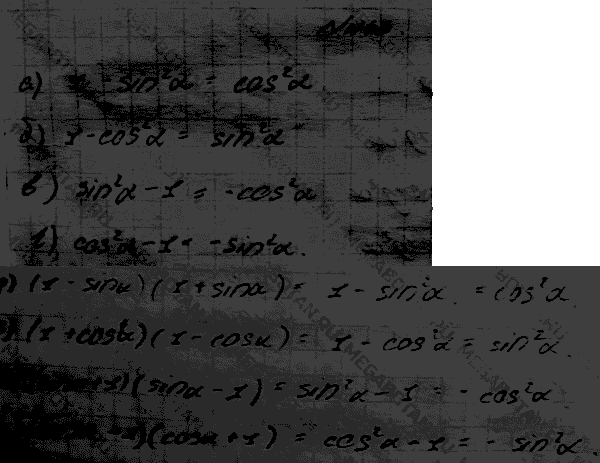 а) 1 - sin²α = cos²α
б) 1 - cos²α = sin²α
в) sin²α - 1 = -cos²α
г) cos²α - 1 = -sin²α.
(1 - sinα)(1 + sinα) = 1 - sin²α = cos²α.
(1 + cosα)(1 - cosα) = 1 - cos²α = sin²α.
(sinα - 1) = sin²α - 1 = - cos²α
(cosα + 1) = cos²α - 1 = - sin²α.